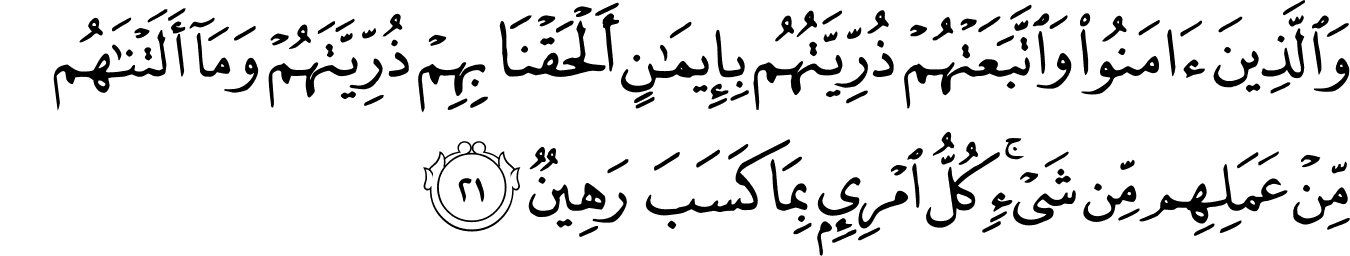 وَٱلَّذِينَ ءَامَنُوا۟ وَٱتَّبَعَتْهُمْ ذُرِّيَّتُهُم بِإِيمَـٰنٍ أَلْحَقْنَا بِهِمْ ذُرِّيَّتَهُمْ وَمَآ أَلَتْنَـٰهُم
مِّنْ عَمَلِهِم مِّن شَىْءٍ ۚ كُلُّ ٱمْرِئٍۭ بِمَا كَسَبَ رَهِينٌ ٢١